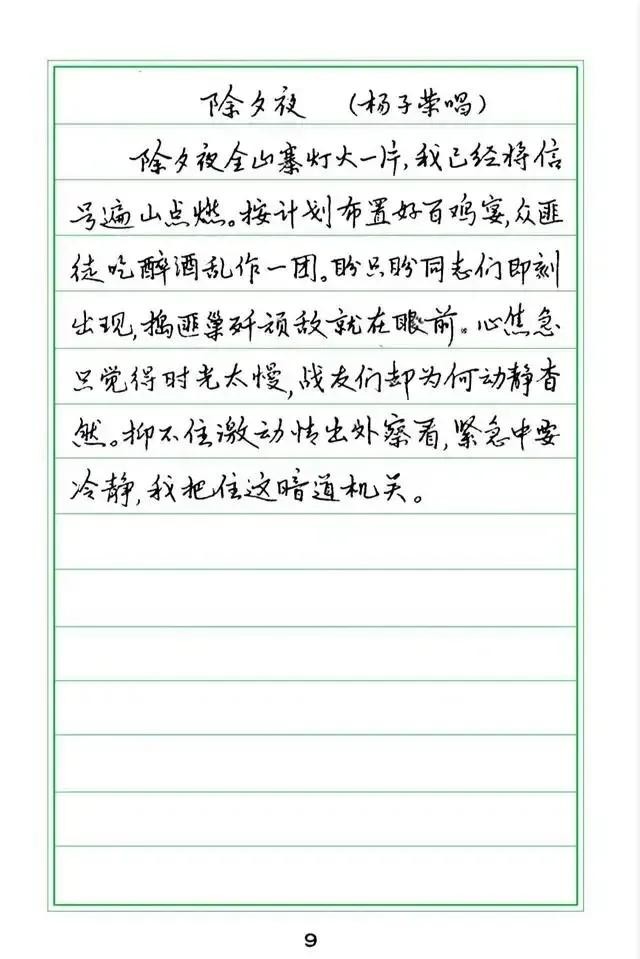 除夕夜 (杨子荣唱)
除夕夜全山寨灯火一片,我已经将信
号遍山点燃。按计划布置好百鸡宴,众匪
徒吃醉酒乱作一团。盼只盼同志们即刻
出现,捣匪巢歼顽敌就在眼前。心焦急
只觉得时光太慢,战友们却为何动静杳
然。抑不住激动情出外察看,紧急中要
冷静,我把住这暗道机关。
9